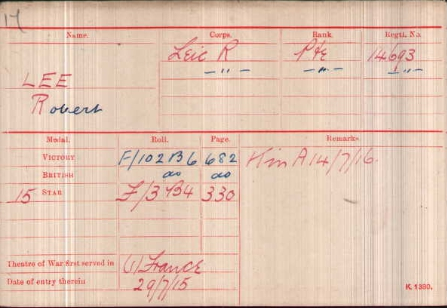 Name. Corps. Rank. Regtl. No.
Leic R Pte 14693
LEE — " — — " — — " —
Robert
Medal. Roll. Page. Remarks.
VICTORY F/102 B6 682 K in A 14/7/16.
BRITISH do do
15 STAR F/3 B4 330
Theatre of War first served in (1) France
Date of entry therein 29/7/15
K 1380.